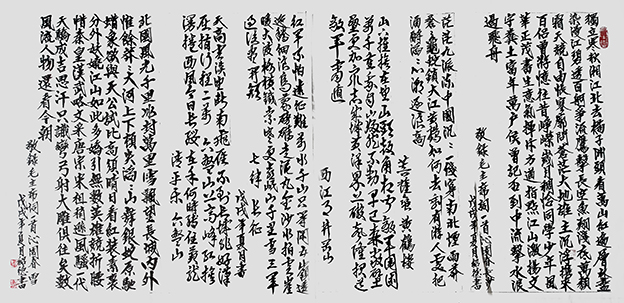 獨立寒秋湘江北去橘子洲頭看萬山紅遍層林盡染
漫江碧透百舸爭流鷹擊長空魚翔淺底萬類
霜天競自由悵寥廓問蒼茫大地誰主沉浮攜來
百侶曾遊憶往昔崢嶸歲月稠恰同學少年風
華正茂書生意氣揮斥方遒指點江山激揚文
字糞土當年萬戶侯曾記否到中流擊水浪
遏飛舟
敬錄毛主席詞一首沁園春
戊戌年夏月
茫茫九派流中國沉沉一線穿南北煙雨莽
蒼蒼龜蛇鎖大江黃鶴知何去剩有遊人處把
酒酹滔滔心潮逐浪高
菩薩蠻 黃鶴樓
山下旌旗在望山頭鼓角相聞敵軍圍困
萬千重我自巋然不動早已森嚴壁
壘更加眾志成城黃洋界上炮聲隆報道
敵軍宵遁
西江月井岡山
紅軍不怕遠征難萬水千山只等閒五嶺逶
迤騰細浪烏蒙磅礴走泥丸金沙水拍雲崖
暖大渡橋橫鐵索寒更喜岷山千里雪三軍
過後盡開顏
七律 長征
天高雲淡望斷南飛雁不到長城非好漢
屈指行程二萬六盤山上高峰紅旗
漫捲西風今日長纓在手何時縛住蒼龍
清平樂六盤山
戊戌年夏月書
北國風光千里冰封萬里雪飄望長城內外
惟餘莽莽大河上下頓失滔滔山舞銀蛇原馳
蠟象欲與天公試比高須晴日看紅裝素裹
分外妖嬈江山如此多嬌引無數英雄競折腰
惜秦皇漢武略輸文采唐宗宋祖稍遜風騷一代
天驕成吉思汗只識彎弓射大雕俱往矣數
風流人物還看今朝
敬錄毛主席詞一首沁園春雪
戊戌年夏月